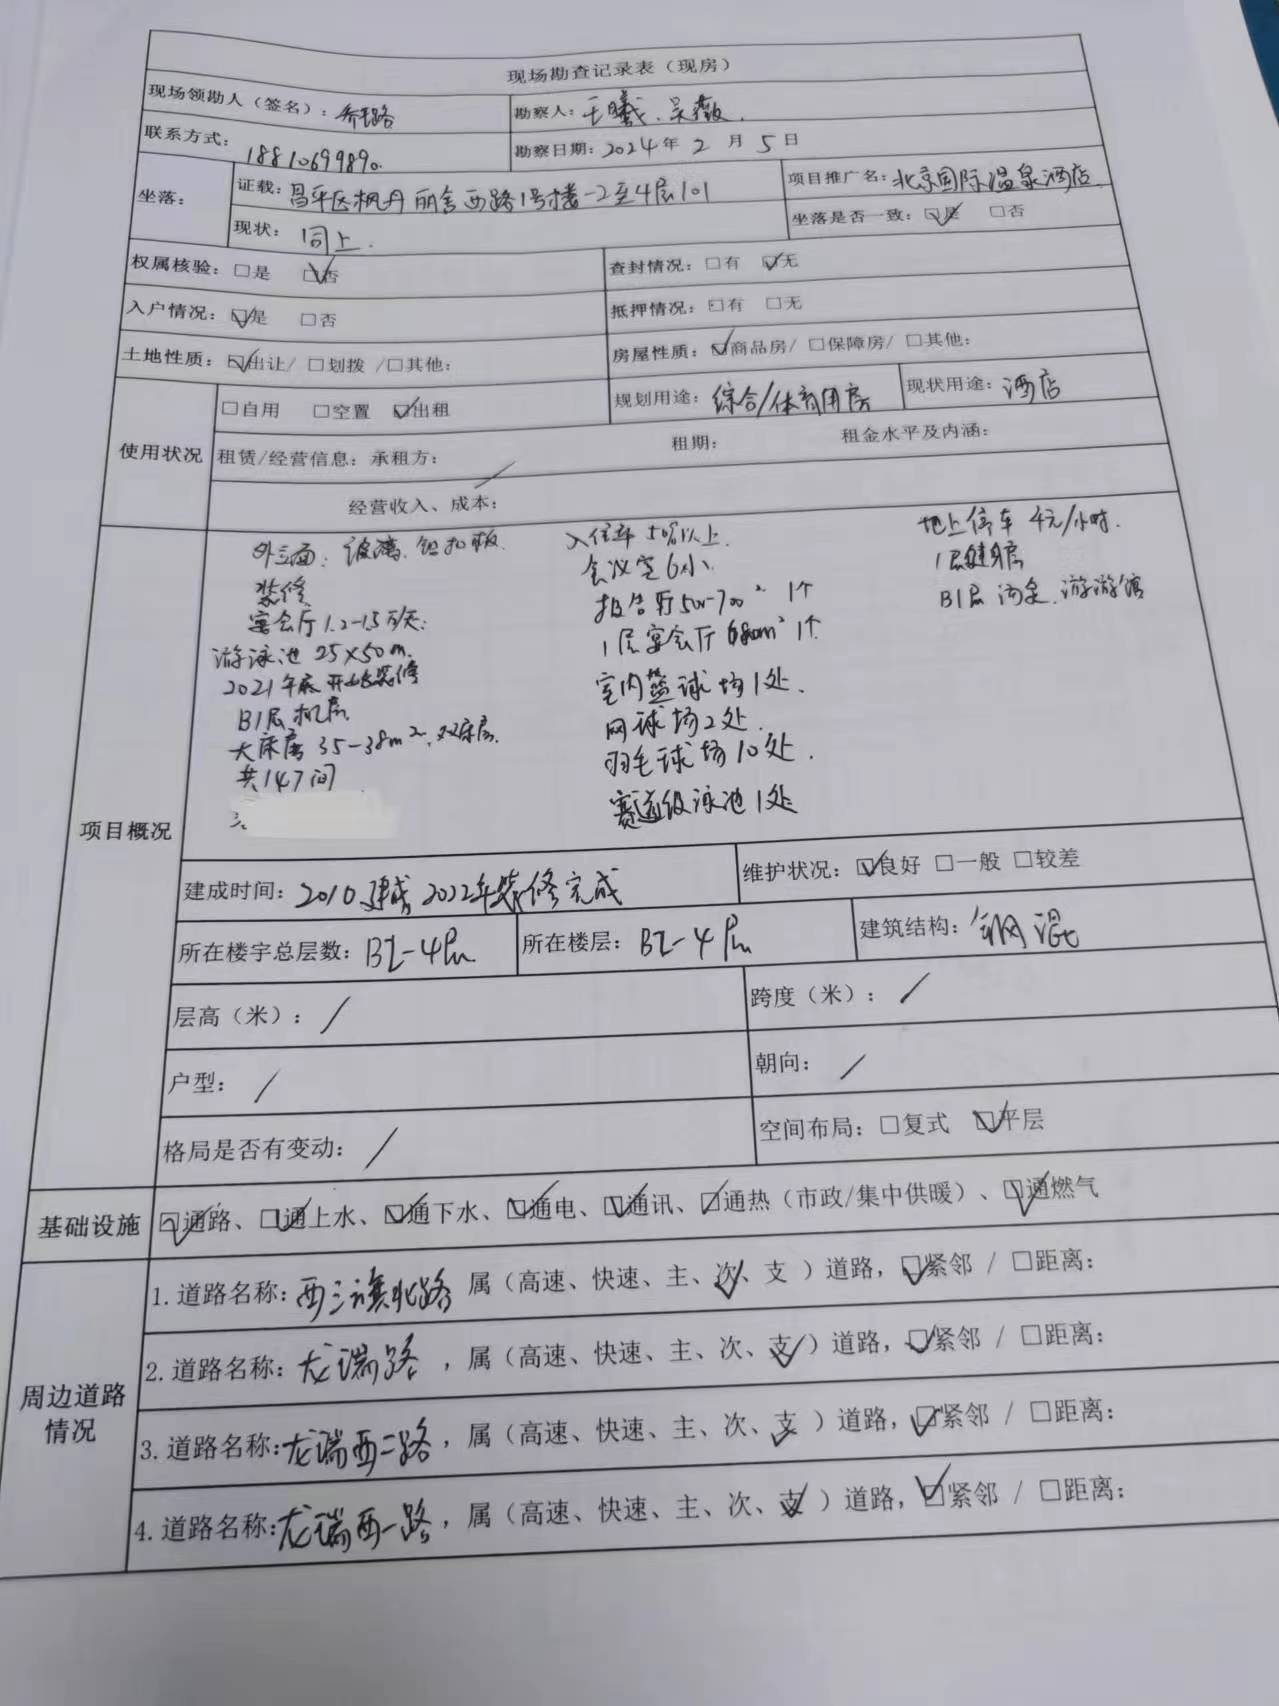 现场勘查记录表（现房）
现场领勘人（签名）： 勘察人：王曦、吴薇
联系方式：18810699890 勘察日期：2024年2月5日
坐落： 证载：昌平区枫丹丽舍西路1号楼-2至4层101 项目推广名：北京国际温泉酒店
现状：同上. 坐落是否一致：☑是 □否
权属核验：□是 ☑否 查封情况：□有 ☑无
入户情况：☑是 □否 抵押情况：□有 □无
土地性质：☑出让/ □划拨 /□其他： 房屋性质：☑商品房/ □保障房/ □其他：
使用状况 □自用 □空置 ☑出租 规划用途：综合/体育用房 现状用途：酒店
租赁/经营信息：承租方： 租期： 租金水平及内涵：
/
经营收入、成本：
项目概况
外立面：玻璃、铝扣板
装修
宴会厅1.2-1.5万/天
游泳池 25×50m.
2021年底开始装修
B1层机房
大床房 35-38m²、双床房.
共147间
入住率50%以上.
会议室6小
报告厅500-700² 1个
1层宴会厅 680m² 1个
室内篮球场1处.
网球场2处.
羽毛球场10处.
赛道级泳池1处
地上停车 4元/小时.
1层健身房
B1层 汤泉、游游馆
建成时间：2010建成 2022年装修完成 维护状况：☑良好 □一般 □较差
所在楼宇总层数：B2-4层 所在楼层：B2-4层 建筑结构：钢混
层高（米）：/ 跨度（米）：/
户型：/ 朝向：/
格局是否有变动：/ 空间布局：□复式 ☑平层
基础设施 ☑通路、☑通上水、☑通下水、☑通电、☑通讯、☑通热（市政/集中供暖）、☑通燃气
周边道路情况
1.道路名称：西三旗北路 属（高速、快速、主、次、支 ）道路，☑紧邻 / □距离：
2.道路名称：龙瑞路 ，属（高速、快速、主、次、支）道路，☑紧邻 / □距离：
3.道路名称：龙瑞西二路 ，属（高速、快速、主、次、支 ）道路，☑紧邻 / □距离：
4.道路名称：龙瑞西一路 ，属（高速、快速、主、次、支 ）道路，☑紧邻 / □距离：